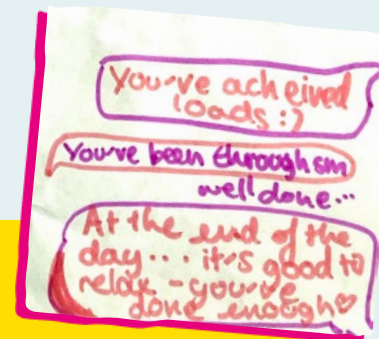 You've acheived
loads :)
You've been through sm
well done...
At the end of the
day... it's good to
relax - you've
done enough♡